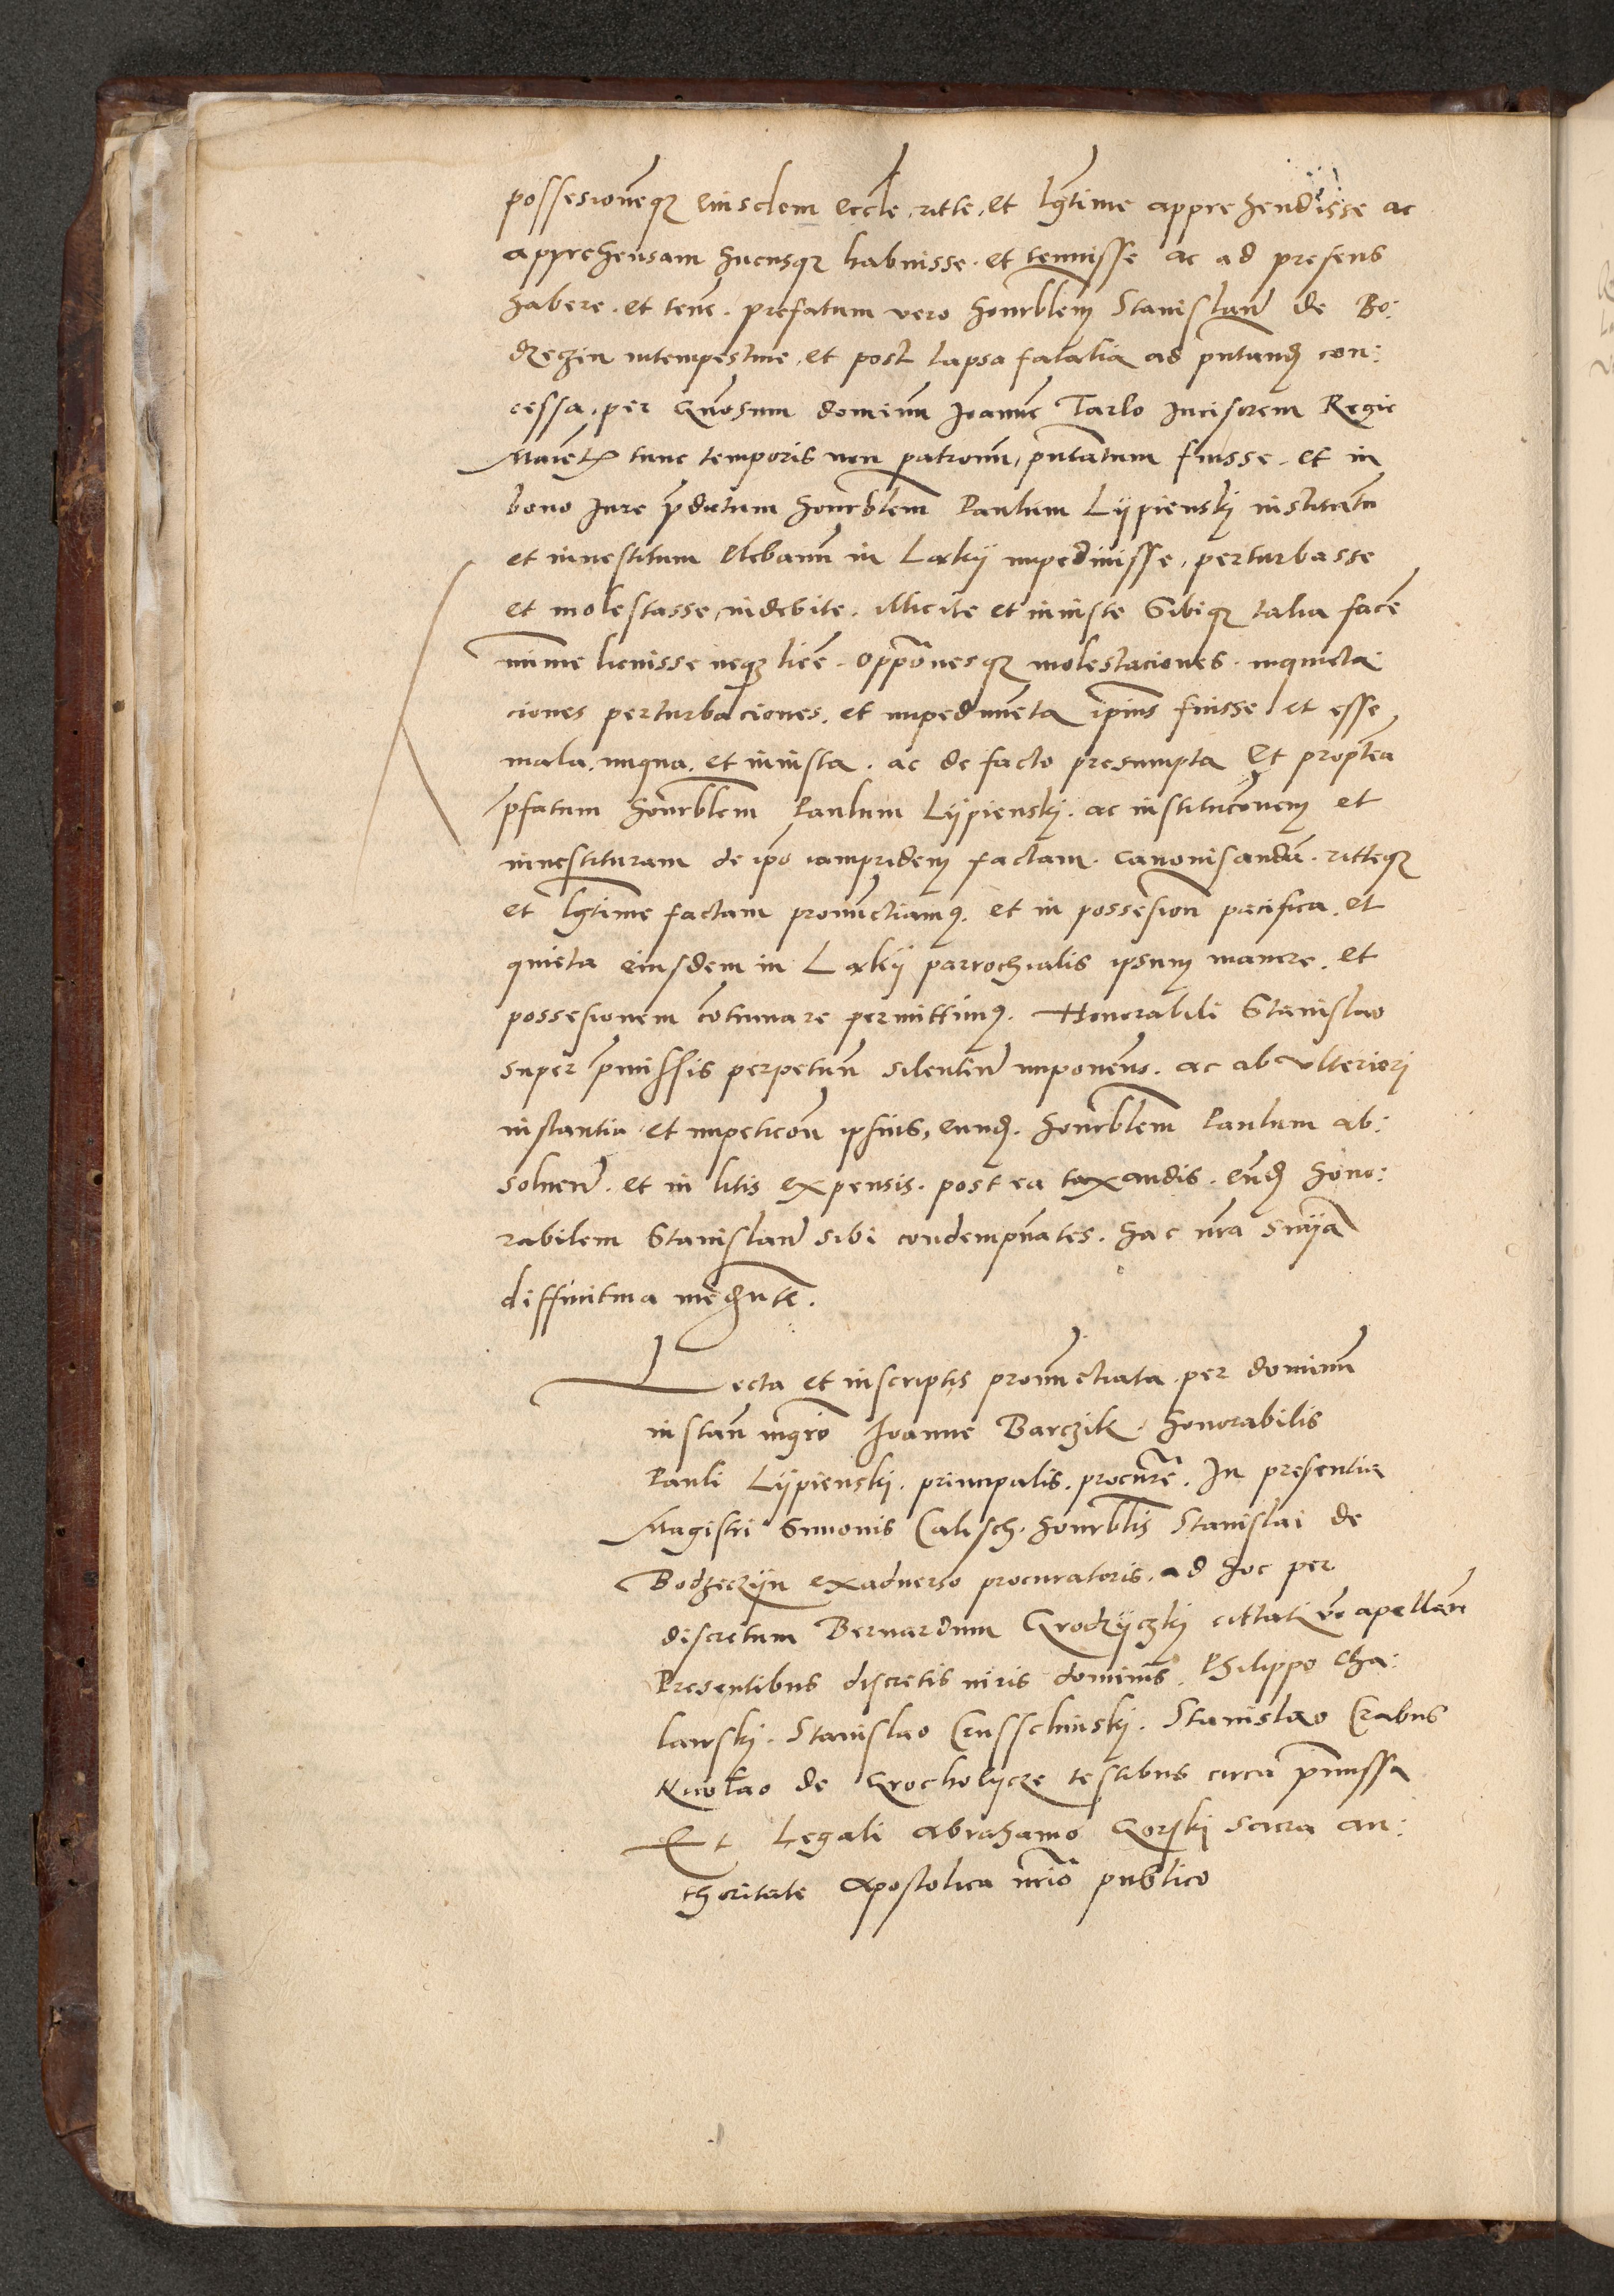 possesionēqz eiusdem eccle ritte et lgttime apprehendisse ac
apprehensam hucusqz habuisse et tenuisse ac ad presens
habere et tene͂ . prefatum vero honrblem Stanislaū de Bo:
dzeczin intempestiue et post lapsa fatalia ad pntandū con:
cessa per gnosum dominū Joannē Tarlo Incisorem Regie
Maiētis tunc temporis non patronū pntatum fuisse et in
bono Jure pdictum honrblem Paulum Lypienski institutū
et inuestitum plebanū in Laky impediuisse perturbasse
et molestasse indebite illicite et iniuste Sibiqz talia face͂
minime licuisse neqz lice͂ . opp͂onesqz molestaciones inquieta
ciones perturbaciones et impedimēta ipius fuisse et esse
mala iniqua et iniusta . ac de facto presumpta Et proptea
pfatum honrblem Paulum Lypienski ac institucōnem et
inuestituram de ipo iampridem factam canonisandā . ritteqz
et lgttime factam pronūctiamꝰ . et in possesionē pacifica et
quieta eiusdem in Laky parrochialis ipsum manere et
possesionem cōtinuare permittimꝰ . Honorabili Stanislao
super pmissis perpetuū silentiū imponētes . ac ab vlteriori
instantia et impeticōē ipsius, eundē . honrblem Paulum ab:
soluen̄ . et in litis expensis . post ea taxandis . eūdē hono:
rabilem Stanislaū sibi condempnātes . hac nrā snīja
diffinitiua mediante .
Lecta et inscriptis pronūctiata per dominū
instan̄ mgrō Joanne Barczik . honorabilis
Pauli Lypienski . principalis . procurē . In presentia
Magistri Simonis Calisch . honrblis Stanislai de
Bodzeczyn exaduerso procuratoris . ad hoc per
discretum Bernardum Grodzyczki cittati et apellan̄
Presentibus discretis viris dominis . Philippo Cha:
lawski . Stanislao Crusschinski . Stanislao Crabus
Nicolao de Grocholycze testibus circa pmissa
Et Legali Abrahamo Gorski sacra au:
thoritate Apostolica nr͂io publico